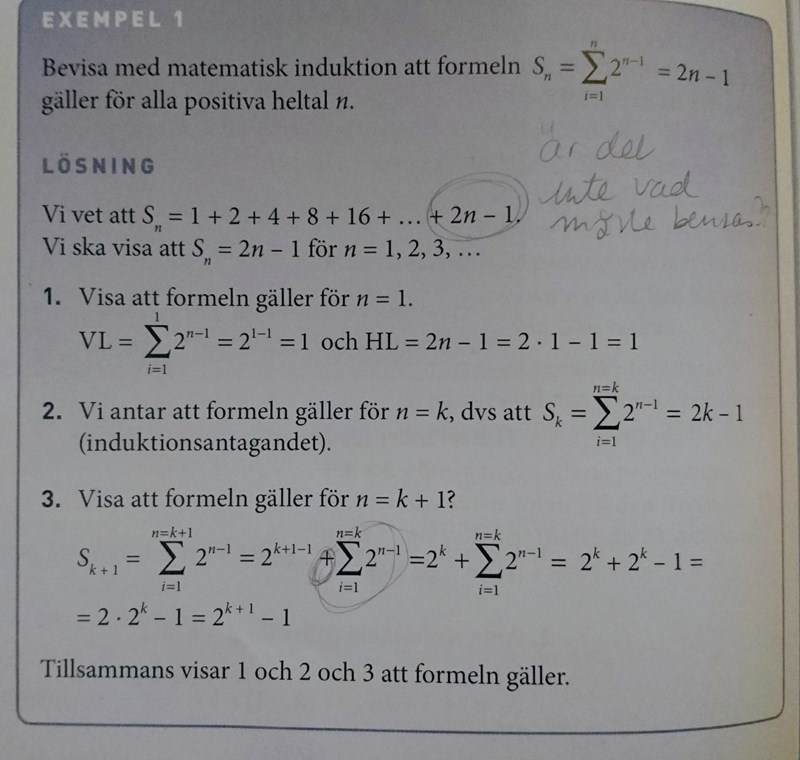 EXEMPEL 1
Bevisa med matematisk induktion att formeln Sₙ = ∑ᵢ₌₁ⁿ 2ⁿ⁻¹ = 2n – 1
gäller för alla positiva heltal n.
är det
inte vad
LÖSNING
Vi vet att Sₙ = 1 + 2 + 4 + 8 + 16 + … + 2n – 1.
Vi ska visa att Sₙ = 2n – 1 för n = 1, 2, 3, …
1. Visa att formeln gäller för n = 1.
VL = ∑ᵢ₌₁¹ 2ⁿ⁻¹ = 2¹⁻¹ = 1 och HL = 2n – 1 = 2 · 1 – 1 = 1
2. Vi antar att formeln gäller för n = k, dvs att Sₖ = ∑ᵢ₌₁ⁿ⁼ᵏ 2ⁿ⁻¹ = 2k – 1
(induktionsantagandet).
3. Visa att formeln gäller för n = k + 1?
Sₖ₊₁ = ∑ᵢ₌₁ⁿ⁼ᵏ⁺¹ 2ⁿ⁻¹ = 2ᵏ⁺¹⁻¹ + ∑ᵢ₌₁ⁿ⁼ᵏ 2ⁿ⁻¹ = 2ᵏ + ∑ᵢ₌₁ⁿ⁼ᵏ 2ⁿ⁻¹ = 2ᵏ + 2ᵏ – 1 =
= 2 · 2ᵏ – 1 = 2ᵏ⁺¹ – 1
Tillsammans visar 1 och 2 och 3 att formeln gäller.